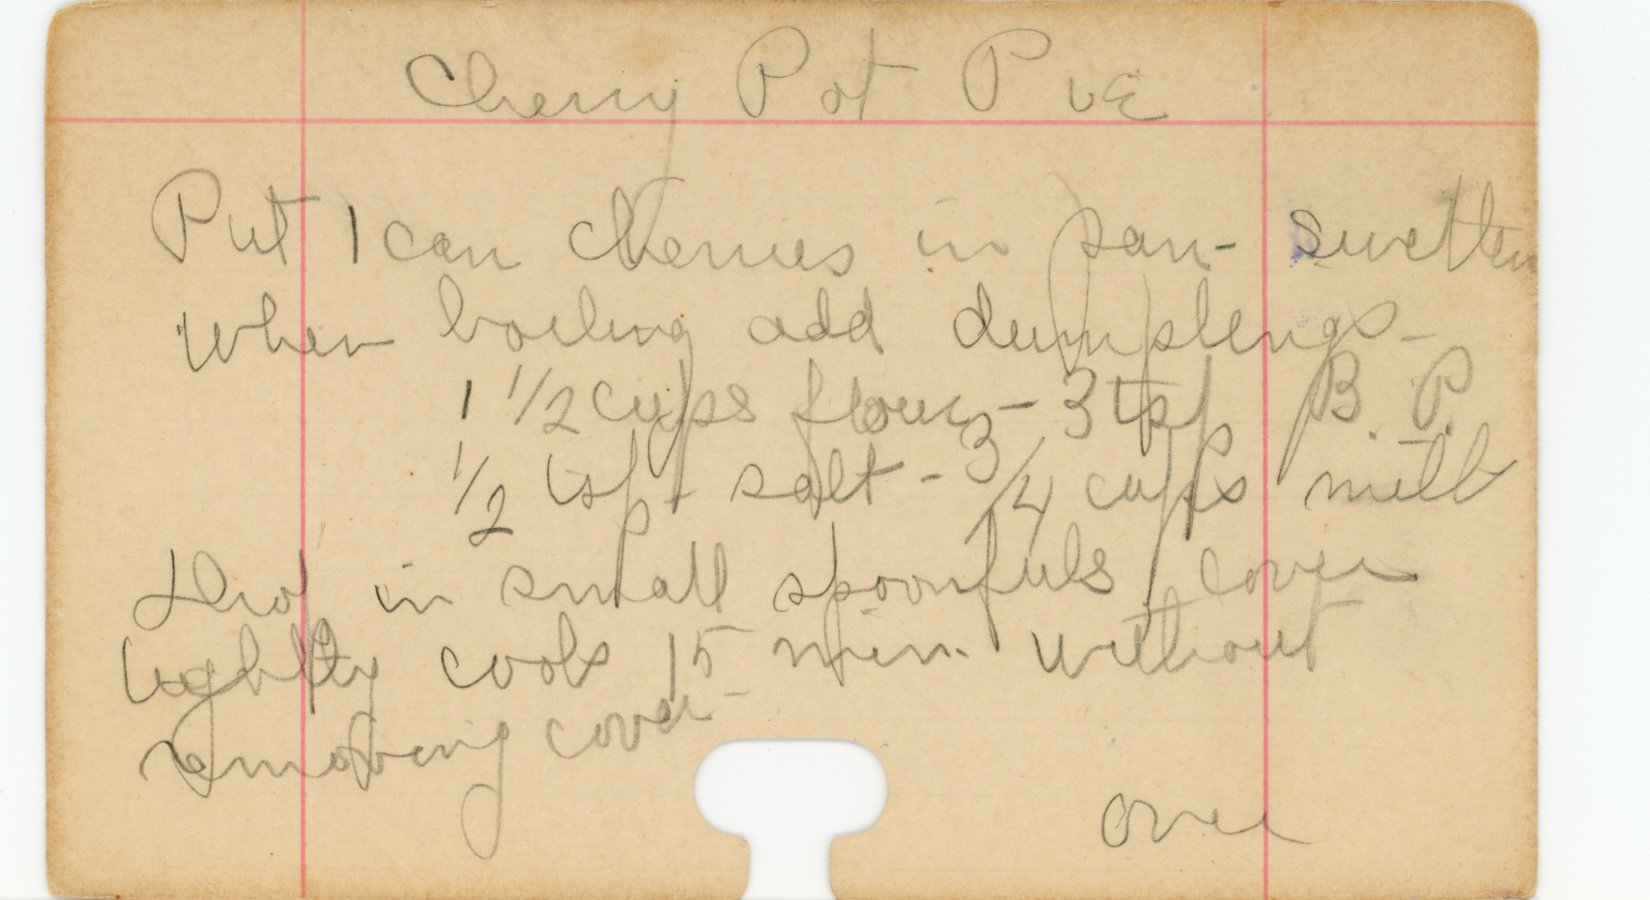 Cherry Pot Pie
Put 1 can cherries in pan - swetten
When boiling add dumplengs -
1 1/2 cups flour - 3 tsp B. P.
1/2 tsp - salt - 3/4 cups milk
drop in small spoonfuls cover
tightly cook 15 min. without
removing cover -
over